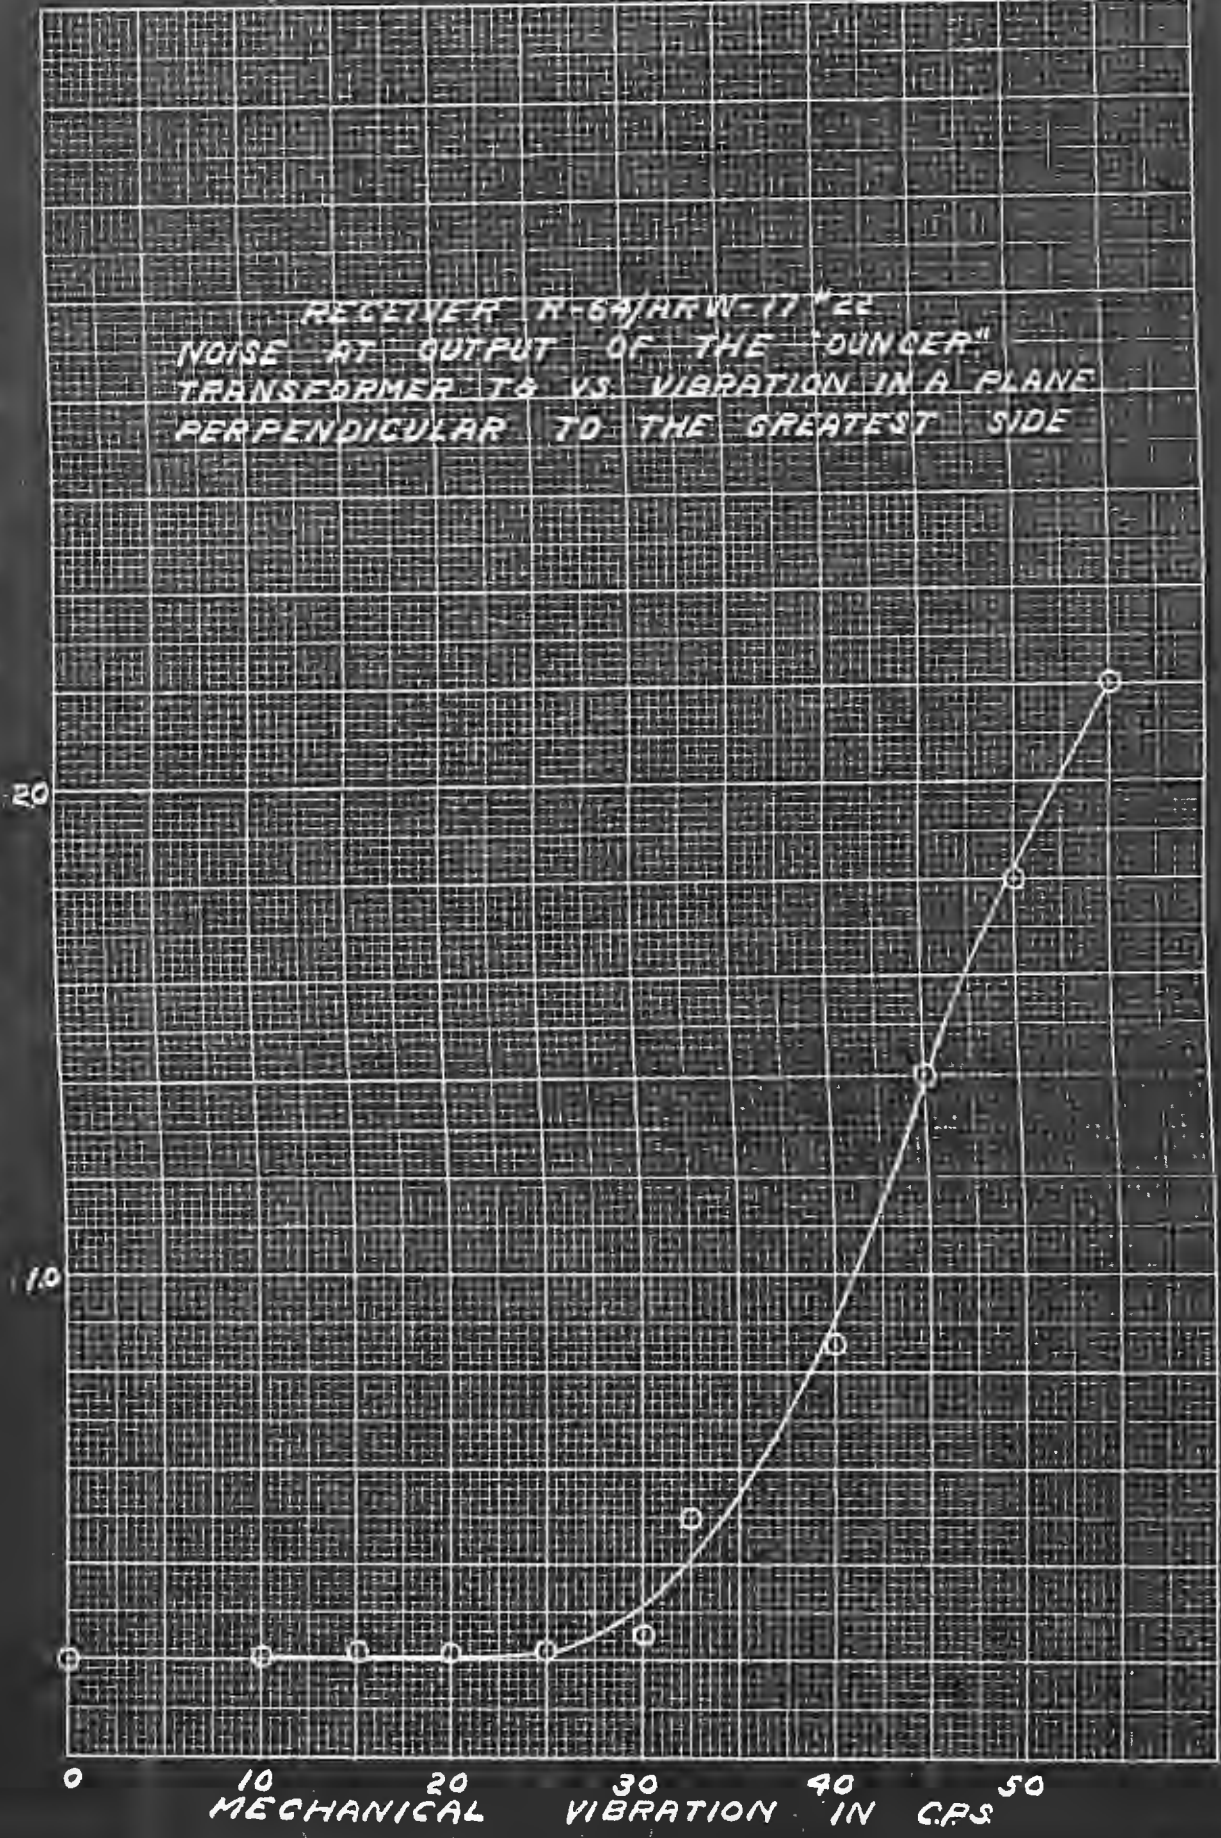 RECEIVER R-64/ARW-17 #22
NOISE AT OUTPUT OF THE "OUNCER"
TRANSFORMER T8 VS. VIBRATION IN A PLANE
PERPENDICULAR TO THE GREATEST SIDE
2.0
1.0
0 10 20 30 40 50
MECHANICAL VIBRATION IN C.P.S.